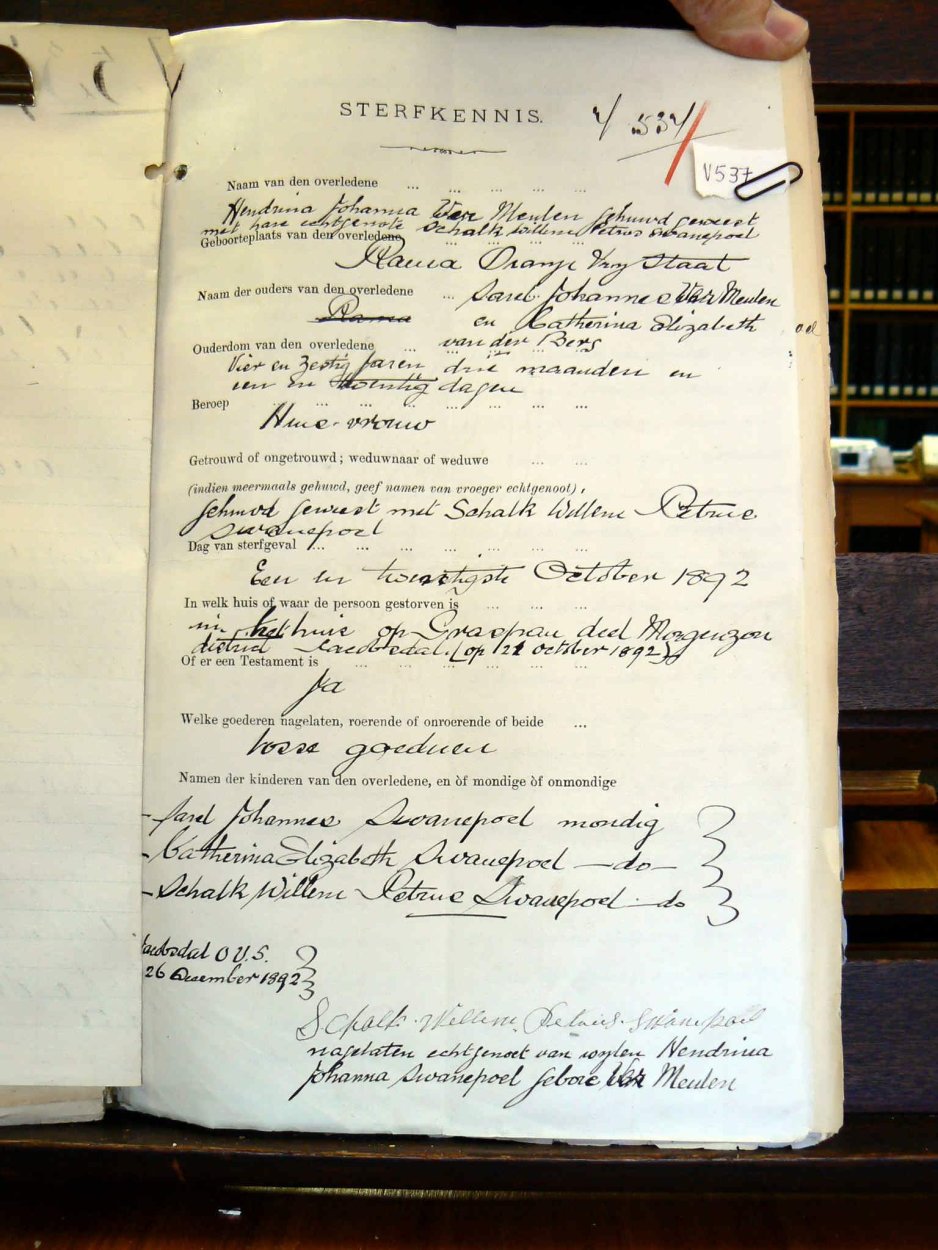 STERFKENNIS.
V/537
V537
Naam van den overledene ... ... ... ... ...
Hendrina Johanna Ver Meulen gehuwd geweest
met hare echtgenote Schalk Willem Petrus Swanepoel
Geboorteplaats van den overledene ... ... ... ...
Rama Oranje Vry Staat
Naam der ouders van den overledene ... Sarel Johannes Ver Meulen
Rama en Catherina Elizabeth
Ouderdom van den overledene ... van der Berg
Vier en Zestig Jaren drie maanden en
een en twentig dagen
Beroep ... ... ... ... ... ... ... ...
Huis-vrouw
Getrouwd of ongetrouwd; weduwnaar of weduwe ... ...
(indien meermaals gehuwd, geef namen van vroeger echtgenoot),
gehuwd geweest met Schalk Willem Petrus
Swanepoel
Dag van sterfgeval ... ... ... ... ... ... ...
Een en twentigste October 1892
In welk huis of waar de persoon gestorven is ... ... ...
in het huis op Graspan deel Morgenzon
district Jacobsdal. (op 21 October 1892)
Of er een Testament is ... ... ... ... ... ...
Ja
Welke goederen nagelaten, roerende of onroerende of beide ...
losse goederen
Namen der kinderen van den overledene, en òf mondige òf onmondige
- Sarel Johannes Swanepoel mondig
- Catherina Elizabeth Swanepoel -do-
- Schalk Willem Petrus Swanepoel -do
Jacobsdal O.V.S.
26 December 1892
Schalk Willem Petrus Swanepoel
nagelaten echtgenoot van wylen Hendrina
Johanna Swanepoel gebore Ver Meulen